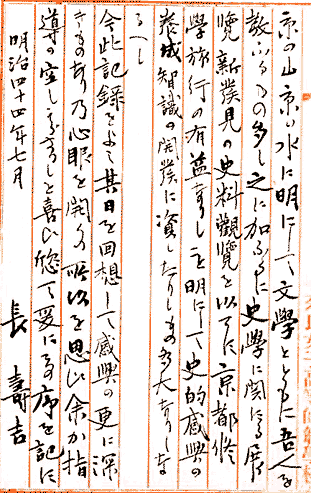 京の山京の水に明にして文學とともに吾人を
教ふるもの多し之に加ふるに史學に関する展
覧新發見の史料觀覧を以てす京都修
學旅行の有益なりしこと明にして史的感興の
養成智識の開發に資したりしもの多大なりしな
るへし
今此記録をよみ其日を回想して感興の更に深
きものあり乃心眼を開く所以を思ひ余か指
導の空しからさりしを喜ひ
明治四十四年七月
長壽吉